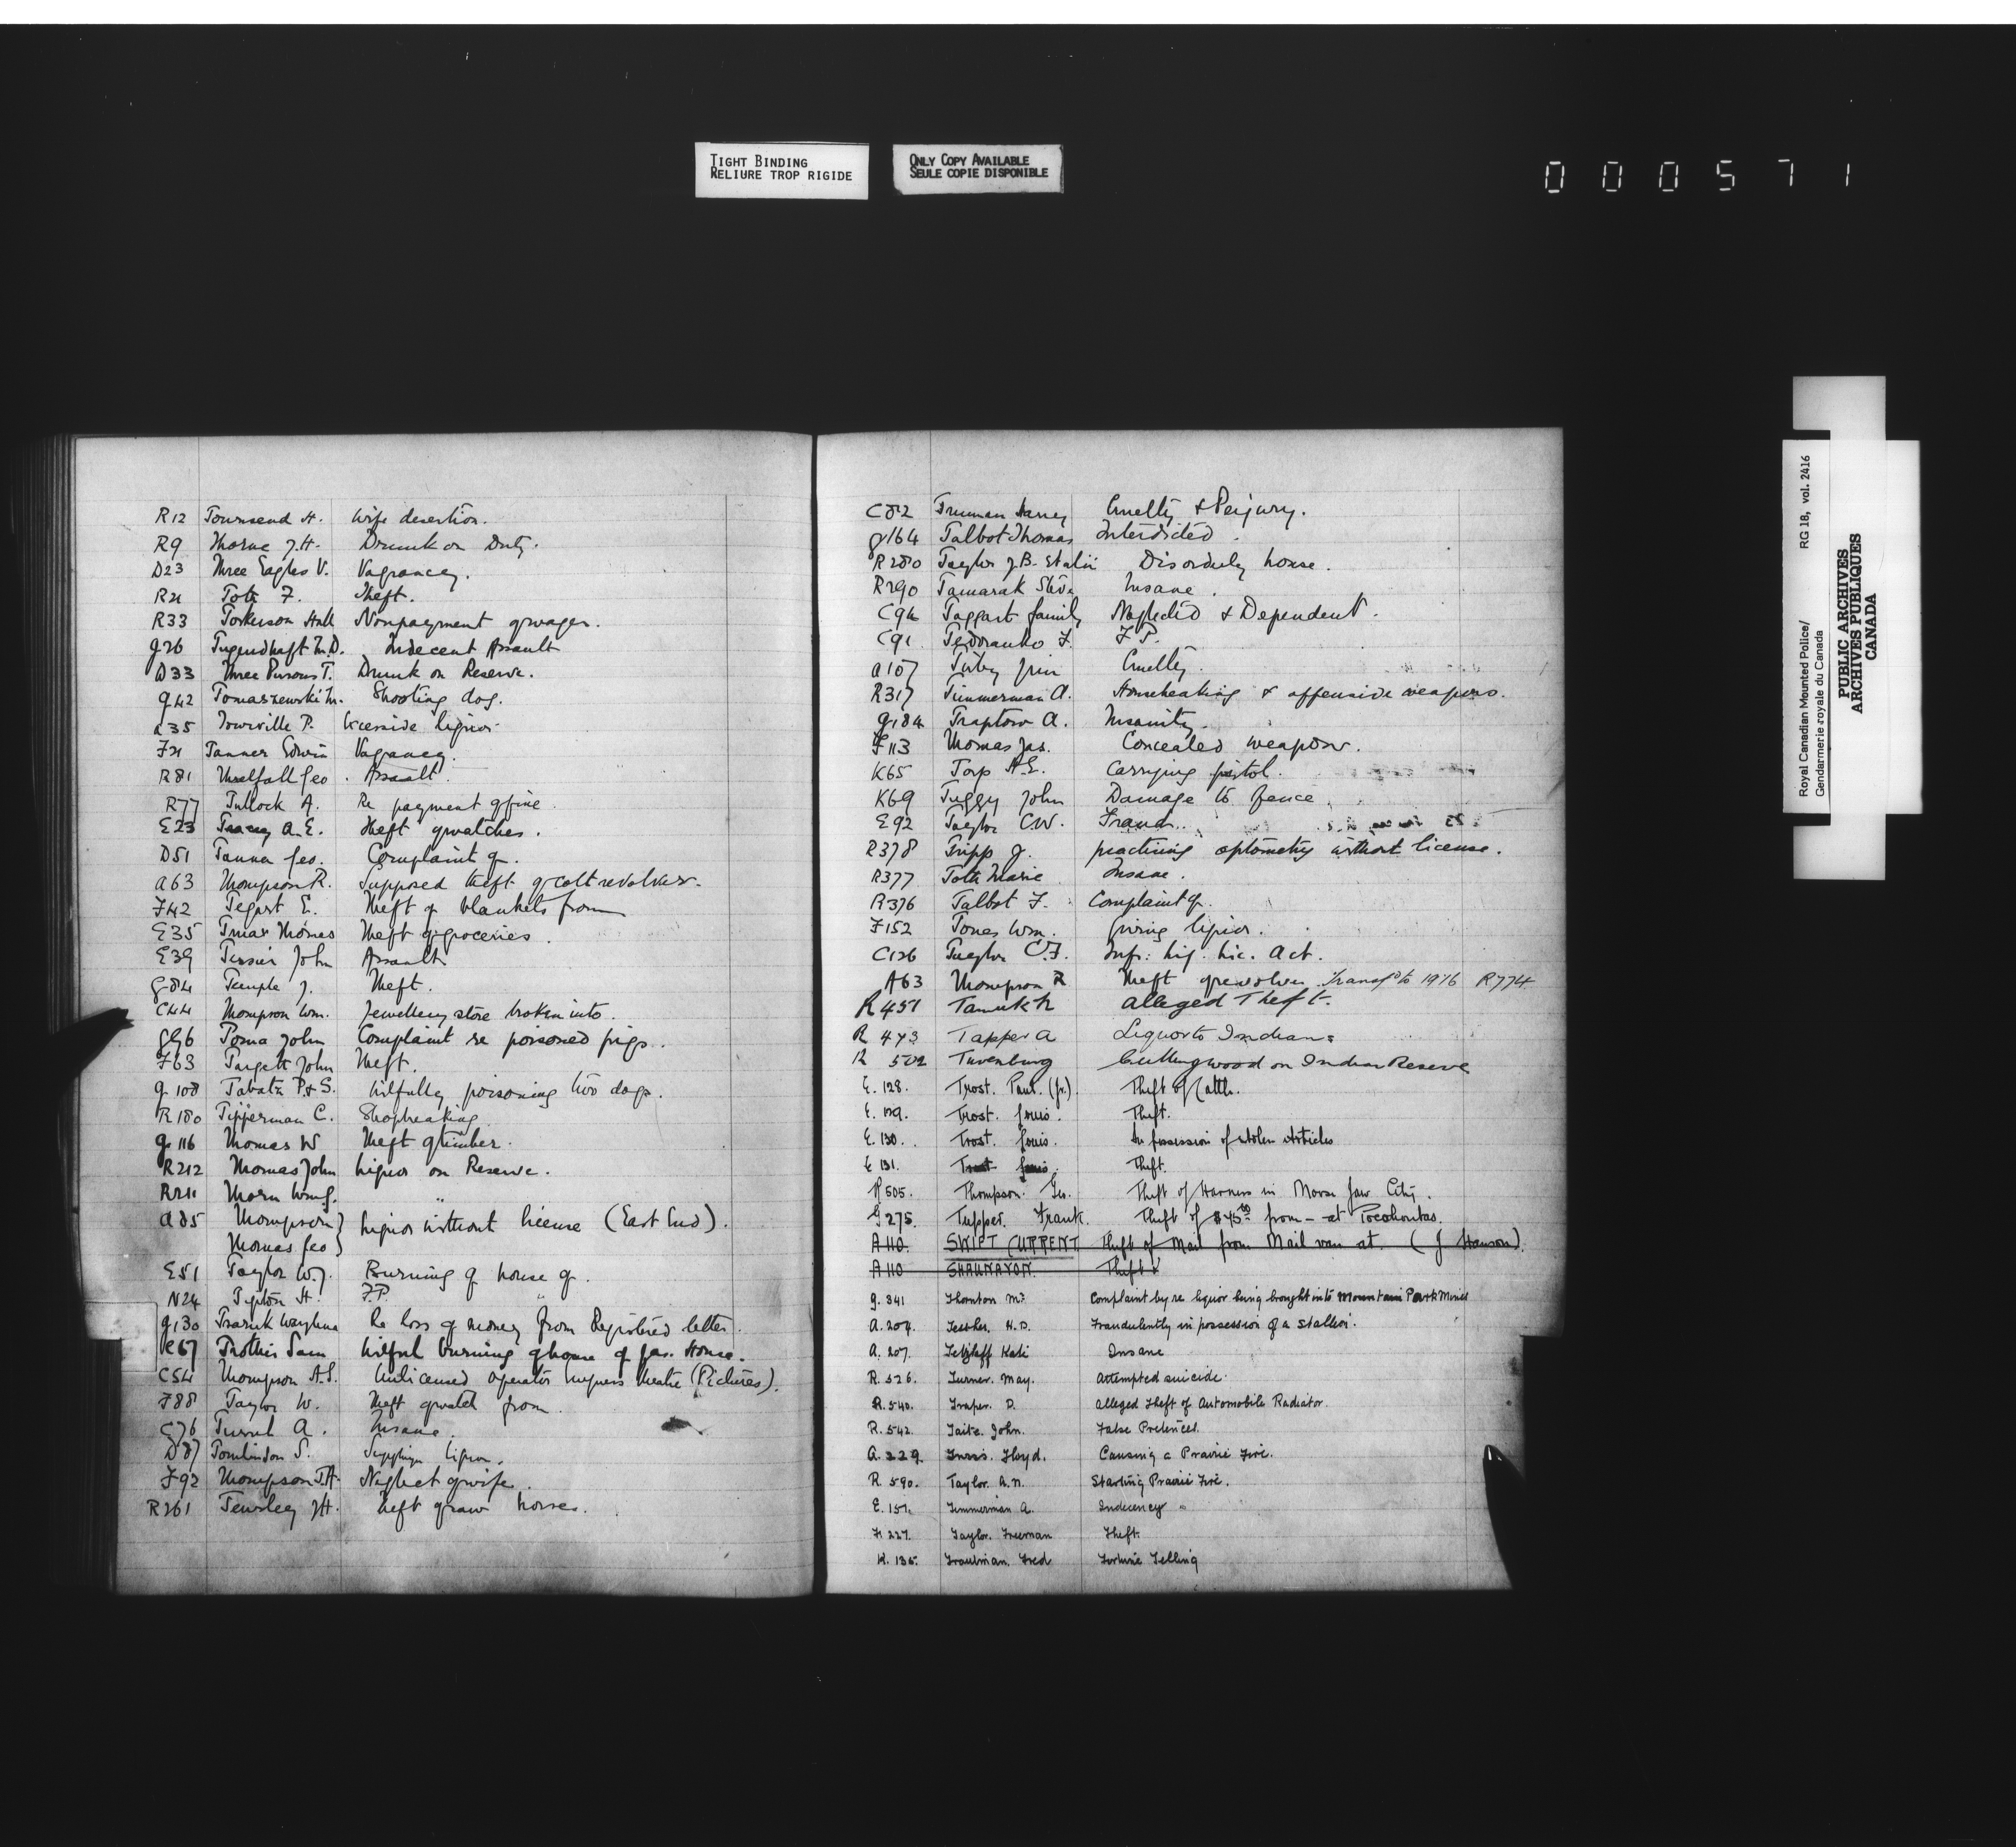 TIGHT BINDING
RELIURE TROP RIGIDE
ONLY COPY AVAILABLE
SEULE COPIE DISPONIBLE
000571
R12 Townsend H. Wife desertion.
R9 Thorne J.H. Drunk on Duty.
D23 Three Eagles V. Vagrancy.
R21 Toth F. Theft.
R33 Nonpayment of wages.
G26 Tugendhaft M.D. Indecent Assault
D33 Three Persons T. Drunk on Reserve.
G42 Tomaszewski M. Shooting dog.
A35 Tourville P. Liquor
F21 Tanner Edwin Vagrancy.
R81 Threlfall Geo. Assault.
R77 Tullock A. Re payment of fine
E23 Tracey A.E. Theft of watches.
D51 Tanna Geo. Complaint of.
A63 Thompson R. Supposed theft of colt revolver.
F42 Tegart E. Theft of blankets from
E35 Thomas Theft of groceries.
E39 Tessier John Assault.
G84 Temple J. Theft.
C44 Thompson Wm. Jewellery store broken into.
G96 Toma John Complaint re poisoned pigs.
F63 Targett John Theft.
G108 Tabatz P.&S. Wilfully poisoning two dogs.
R180 Tipperman C. Shopbreaking
G116 Thomas W Theft of timber.
R212 Thomas John Liquor on Reserve.
R211 Thorn Wm G. "
A85 Thompson } Liquor without license (East End).
Thomas Geo }
E51 Taylor W.J. Burning of house of.
N24 Tipton H. F.P. "
G130 Re Loss of money from Registered letter.
K67 Trottier Sam Wilful burning of house of Jas. House.
C54 Thompson A.S. Unlicensed operator Empress theatre (Pictures).
F88 Taylor W. Theft of watch from
C76 A. Insane.
D87 Tomlinson S. Supplying liquor.
F92 Thompson T.H. Neglect of wife
R261 Tewsley J.H. Theft of raw horses.
C82 Truman Harry Cruelty & Perjury.
G164 Talbot Thomas Interdicted.
R280 Taylor J.B. Disorderly house.
R290 Tamarak Steve Insane.
C94 Taggart family Neglected & Dependent.
C91 F. F.P.
A107 Tixby Jim Cruelty.
R317 Timmerman A. Housebreaking & offensive weapons.
G184 Traptow A. Insanity.
F113 Thomas Jas. Concealed weapons.
K65 Torp A.E. Carrying pistol.
K69 Tuggy John Damage to fence
E92 Taylor C.W. Fraud.
R378 Tripp J. practising optometry without license.
R377 Toth Marie Insane.
R376 Talbot F. Complaint of.
F152 Tones Wm. Giving liquor.
C126 Taylor C.F. Infr: Liq. Lic. Act.
A63 Thompson R Theft of revolver Transf'd to 1916 R774
R451 Tamuk h alleged Theft.
R 473 Tapper A Liquor to Indians
R 502 Tuvenburg Cutting wood on Indian Reserve
E. 128. Trost. Paul. (Jr.). Theft of Cattle.
E. 129. Trost. Louis. Theft.
E. 130. Trost. Louis. In possession of stolen Articles
E 131. Trost Louis. Theft.
R 505. Thompson. Geo. Theft of Harness in Moose Jaw City.
G 275. Tupper. Frank. Theft of $45.00 from - at Pocahontas.
A 110. SWIFT CURRENT Theft of Mail from Mail van at. (J Hanson).
A 110 SHAUNAVON. Theft
G. 341 Thornton Mr. Complaint by re liquor being brought into Mountain Park Mines
A. 204. H.D. Fraudulently in possession of a stallion.
A. 207. Tetzlaff Kate Insane
R. 526. Turner. May. Attempted suicide.
R. 540. Traper. D. Alleged Theft of Automobile Radiator.
R. 542. Taite. John. False Pretences.
A. 229. Lloyd. Causing a Prairie Fire.
R. 590. Taylor. A.N. Starting Prairie Fire.
E. 157. Timmerman A. Indecency "
F. 227. Taylor. Freeman Theft.
K. 135. Trautman. Fred Fortune Telling
Royal Canadian Mounted Police/
Gendarmerie royale du Canada
RG 18, vol. 2416
PUBLIC ARCHIVES
ARCHIVES PUBLIQUES
CANADA